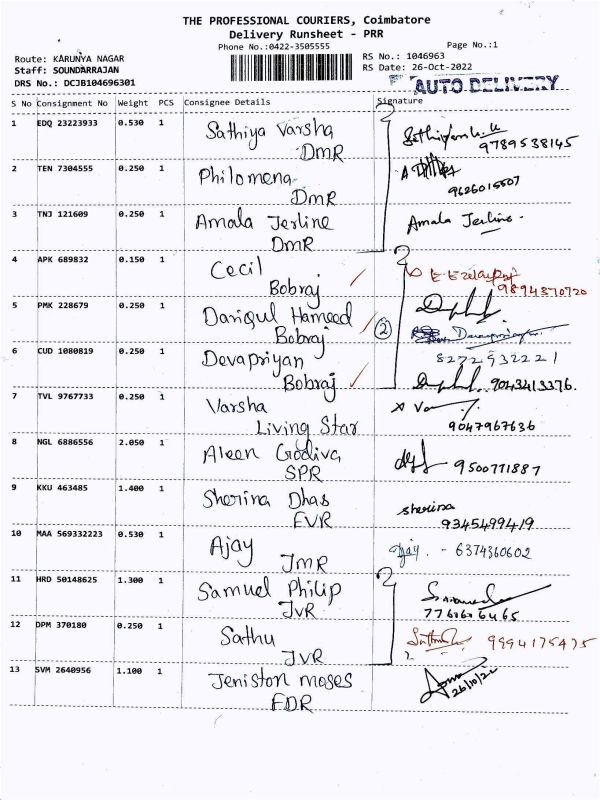 THE PROFESSIONAL COURIERS, Coimbatore
Delivery Runsheet - PRR
Phone No.:0422-3505555
Page No.:1
Route: KARUNYA NAGAR
RS No.: 1046963
Staff: SOUNDARRAJAN
RS Date: 26-Oct-2022
DRS No.: DCJB104696301
AUTO DELIVERY
S No Consignment No Weight PCS Consignee Details Signature
1 EDQ 23223933 0.530 1 Sathiya Varsha
DMR 9789538145
2 TEN 7304555 0.250 1 Philomena
DMR 9626015507
3 TNJ 121609 0.250 1 Amala Jerline Amala Jerline
DMR
4 APK 689832 0.150 1 Cecil
Bobraj 9894370720
5 PMK 228679 0.250 1 Dariqul Hameed
Bobraj 2
6 CUD 1080819 0.250 1 Devapriyan 8272932221
Bobraj 9043413376
7 TVL 9767733 0.250 1 Varsha
Living Star 9047967636
8 NGL 6886556 2.050 1 Aleen Godiva
SPR 9500771887
9 KKU 463485 1.400 1 Sherina Dhas sherina
EVR 9345499419
10 MAA 569332223 0.530 1 Ajay Ajay - 6374360602
JMR
11 HRD 50148625 1.300 1 Samuel Philip
JVR
12 DPM 370180 0.250 1 Sathu
JVR
13 SVM 2640956 1.100 1 Jeniston moses
EDR 26/10/22